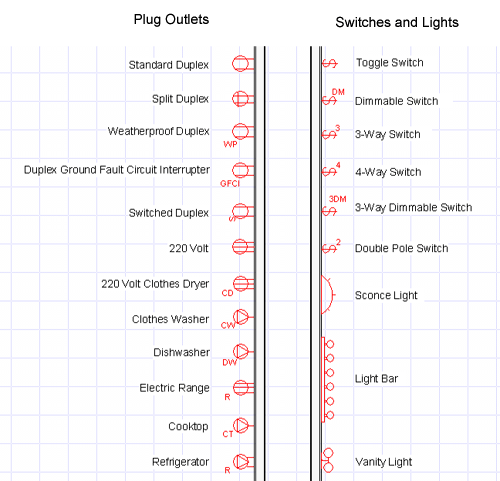 Plug Outlets
Standard Duplex
Split Duplex
Weatherproof Duplex
WP
Duplex Ground Fault Circuit Interrupter
GFCI
Switched Duplex
S
220 Volt
220 Volt Clothes Dryer
CD
Clothes Washer
CW
Dishwasher
DW
Electric Range
R
Cooktop
CT
Refrigerator
R
Switches and Lights
Toggle Switch
DM
Dimmable Switch
3
3-Way Switch
4
4-Way Switch
3DM
3-Way Dimmable Switch
2
Double Pole Switch
Sconce Light
Light Bar
Vanity Light